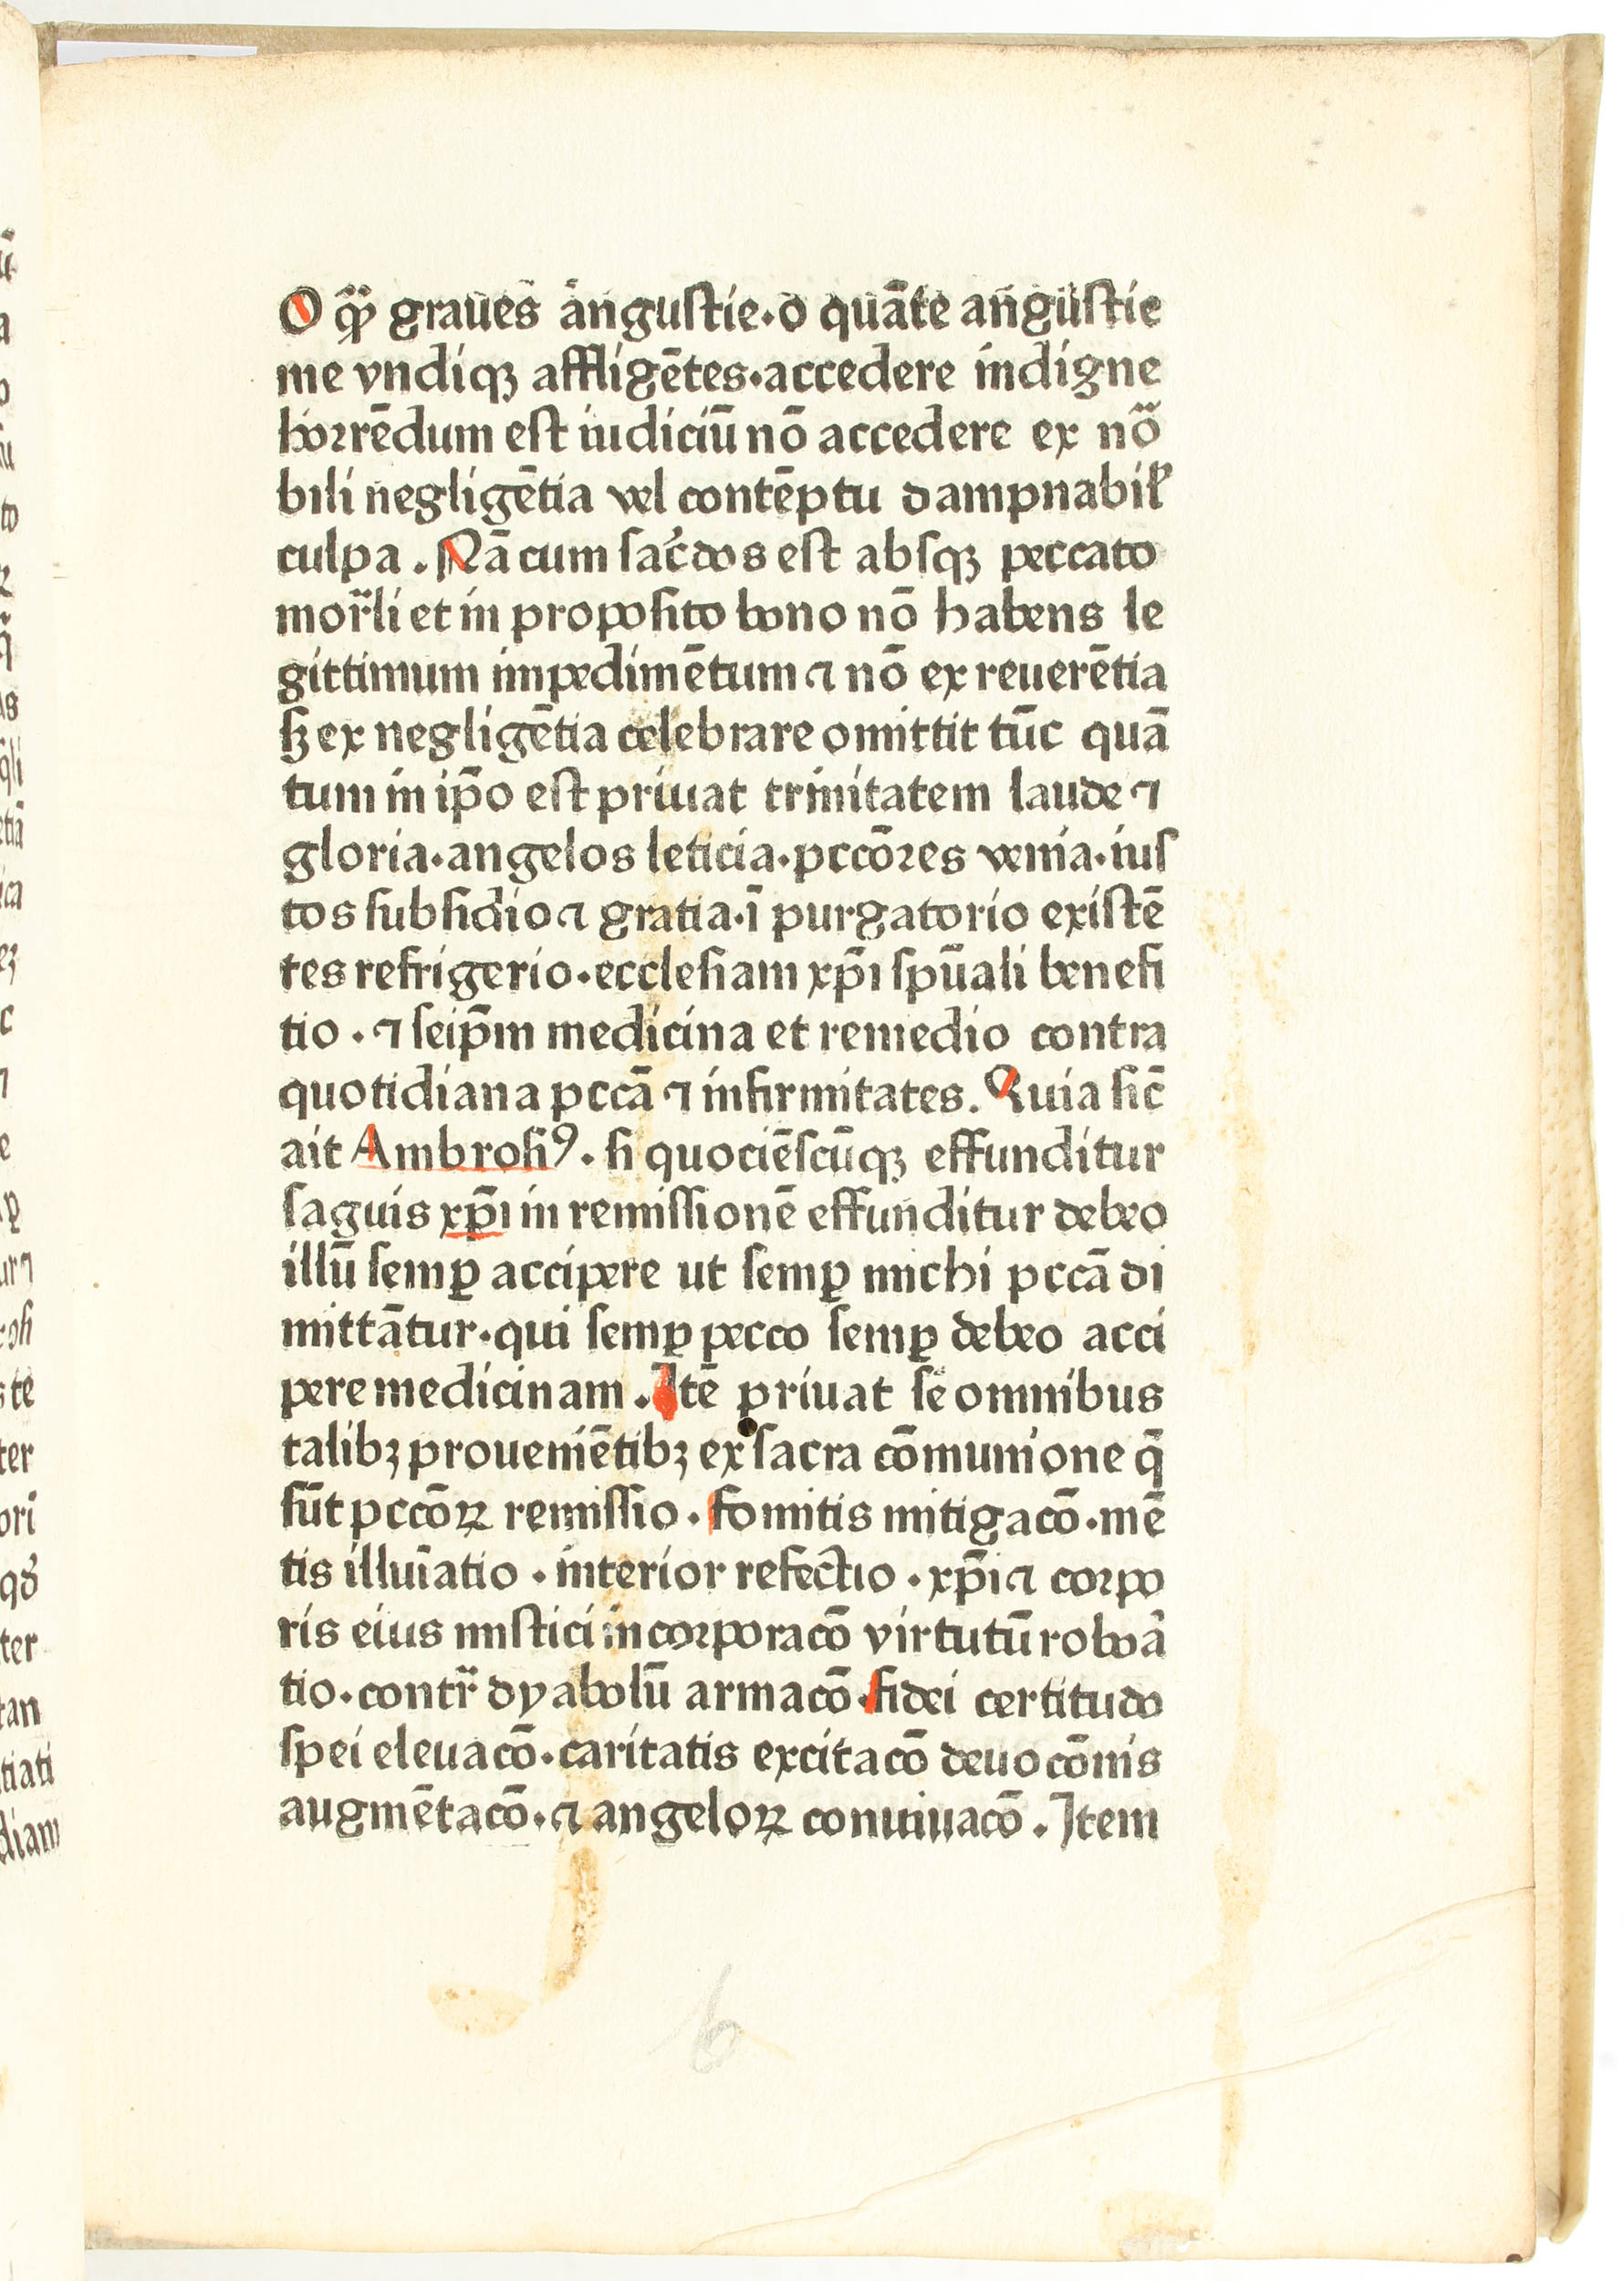 O qͣꝫ graues̄ āngustie·o quāte an̄gus̄tie
me vndiqꝫ affligētes·accedere indigne
horrēdum est iudiciū nō accedere ex nōͣ
bili negligētia vel contēptu dampnabilꝭ
culpa . Nā cum sac̄dos est absqꝫ peccato
mor̄li et in proposito bono nō habens le
gittimum impedimētum ⁊ nō ex reuerētia
sꝫ ex negligētia celebrare omittit tūc quā
tum in ip̄o est priuat trinitatem laude ⁊
gloria·angelos leticia·pccōres venia·ius
tos subsidio ⁊ gratia·ī purgatorio existē
tes refrigerio·ecclesiam xp̄i spūali benefi
tio . ⁊ seip̄m medicina et remedio contra
quotidiana pccā ⁊ infirmitates. Quia sic̄
ait Ambrosiꝰ. si quociēscūqꝫ effunditur
saguis xp̄i in remissionē effunditur debeo
illū semꝑ accipere ut semꝑ michi pccā di
mittātur·qui semꝑ pecco semꝑ debeo acci
pere medicinam . Itē priuat se omnibus
talibꝫ proueniētibꝫ ex sacra cōmunione q̄
sūt pccōꝝ remissio . fomitis mitigacō·mē
tis illuīatio · interior refectio · xp̄i ⁊ corpo
ris eius mistici incorporacō virtutū roboā
tio·contr̄ dyabolū armacō·fidei certitudo
spei eleuacō·caritatis excitacō deuocōnis
augmētacō·⁊ angeloꝝ conuiuacō . Item
b